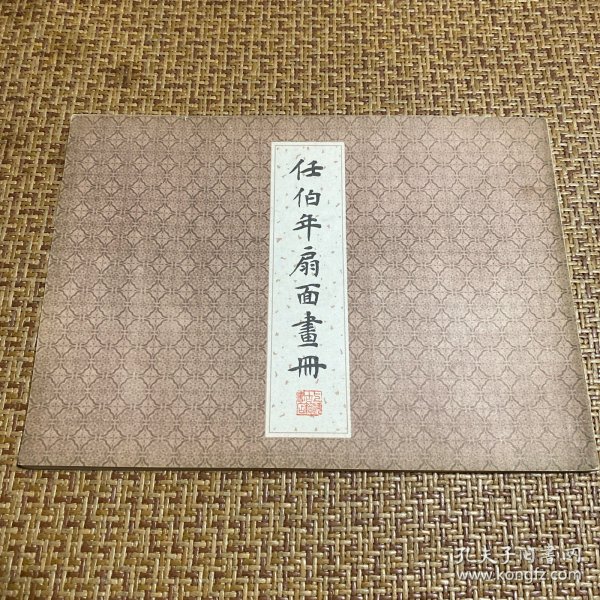 任伯年扇面畫冊
孔夫子旧书网
www.kongfz.com